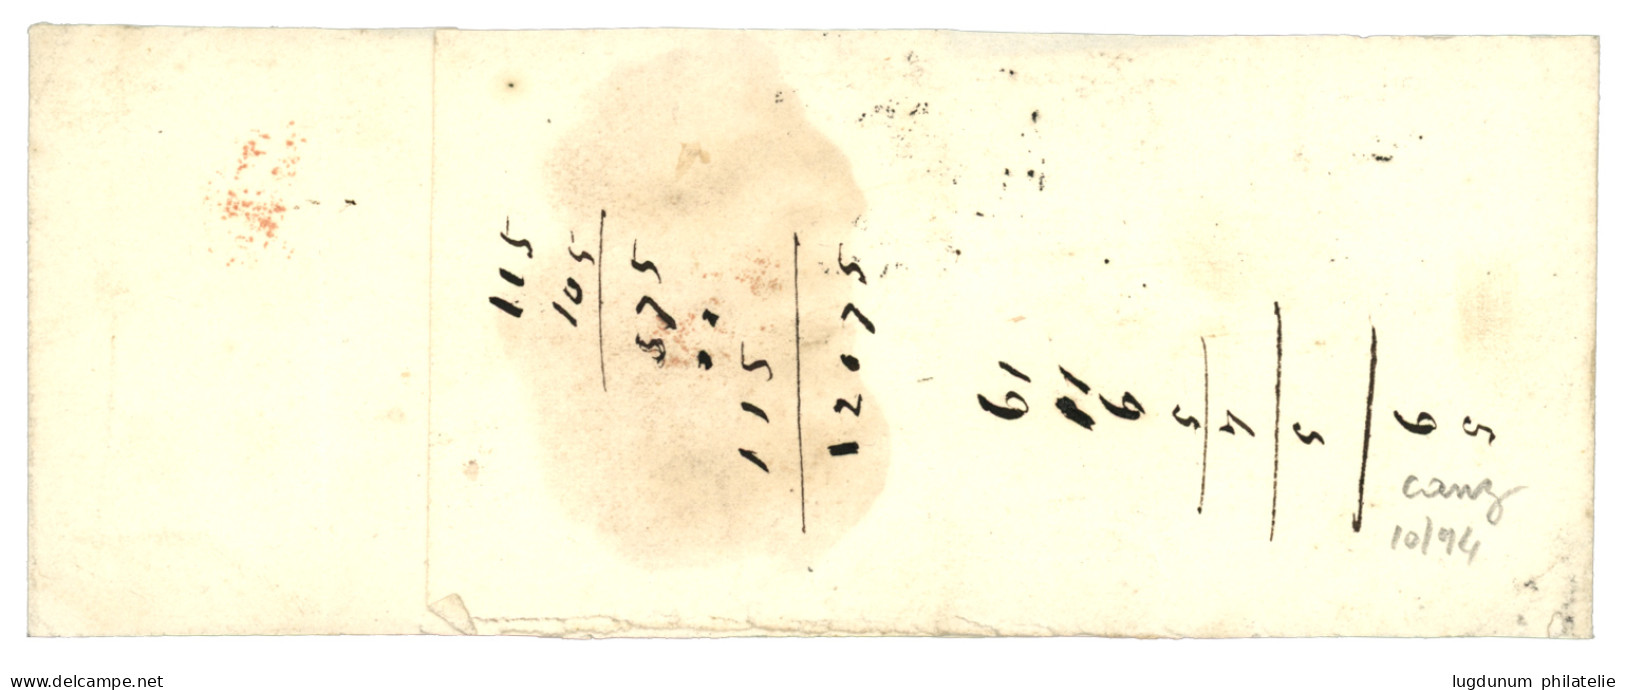 115
105
575
00
115
12075
19
11
9
5
4
5
9
5
10/94
www.delcampe.net
lugdunum philatelie